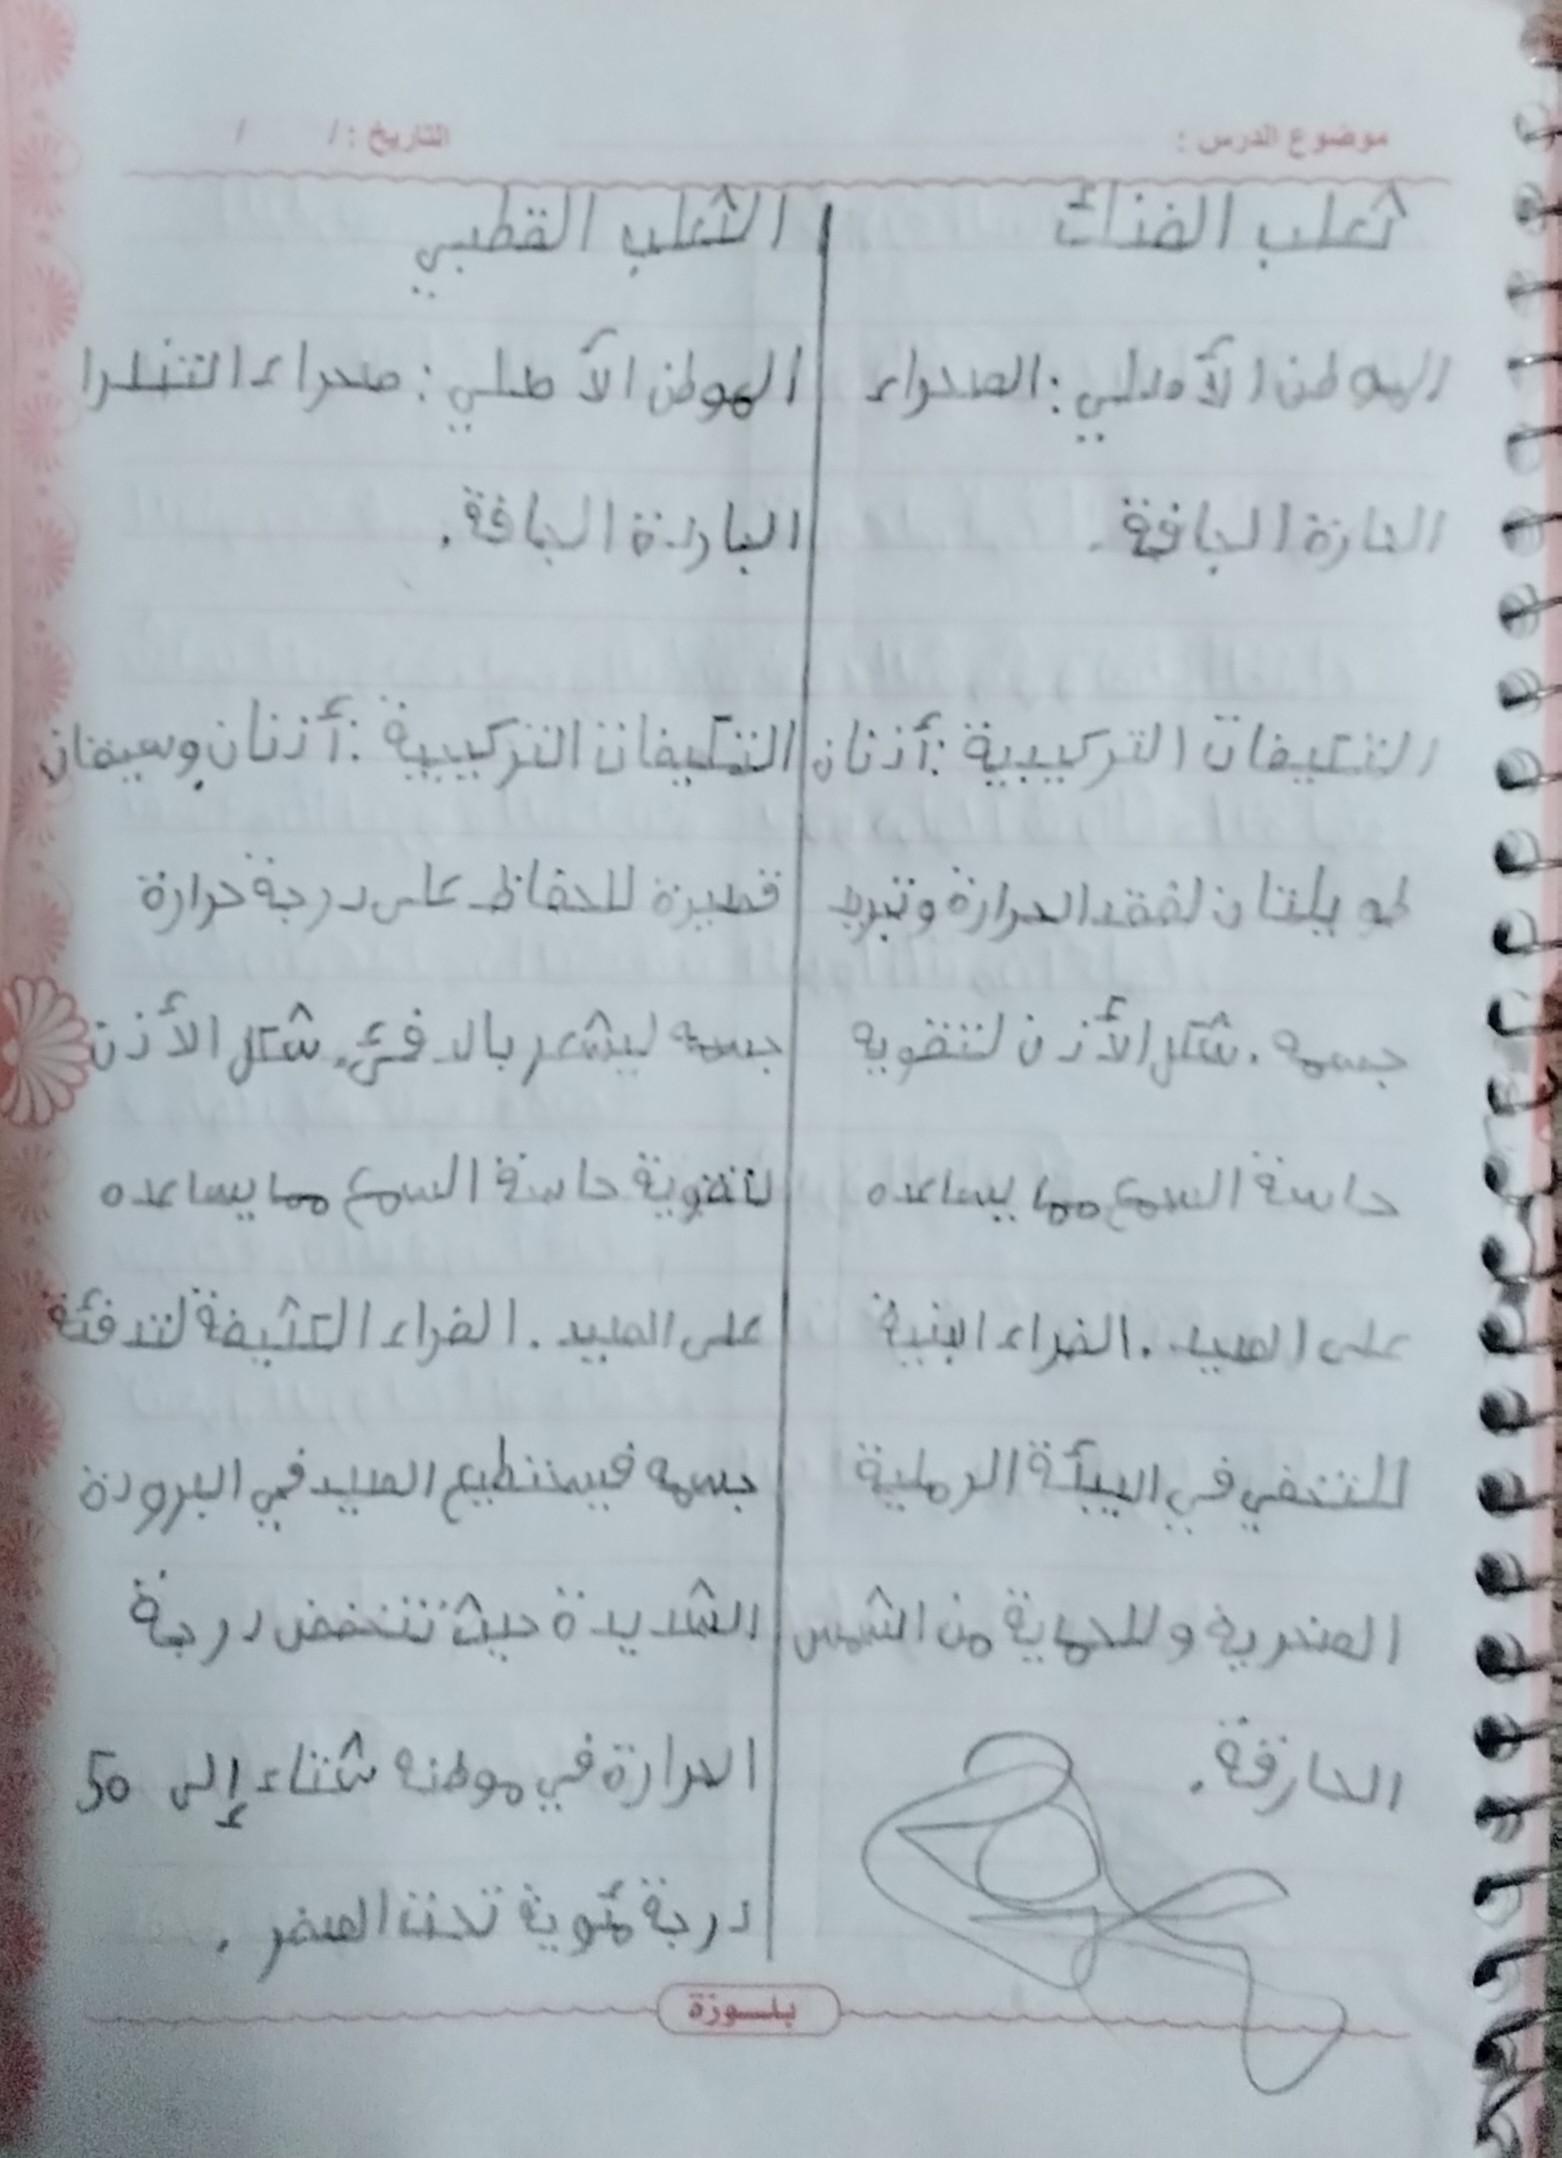 موضوع الدرس :
التاريخ : / /
ثعلب الفنك
الموطن الأصلي : الصحراء
الحارة الجافة .
التكيفات التركيبية : أذنان
طويلتان لفقد الحرارة وتبريد
جسمه . شكل الأذن لتقويه
حاسة السمع مما يساعده
على الصيد . الفراء البنية
للتخفي في البيأة الرملية
الصخرية وللحماية من الشمس
الحارقة .
الثعلب القطبي
الموطن الأصلي : صحراء التندرا
الباردة الجافة .
التكيفات التركيبية : أذنان وسيقان
قصيرة للحفاظ على درجة حرارة
جسمه ليشعر بالدفئ . شكل الأذن
لتقوية حاسة السمع مما يساعده
على الصيد . الفراء الكثيفة لتدفئة
جسمه فيستطيع الصيد في البرودة
الشديدة حيث تنخفض درجة
الحرارة في موطنه شتاء إلى 50
درجة مئوية تحت الصفر .
بلـوزة